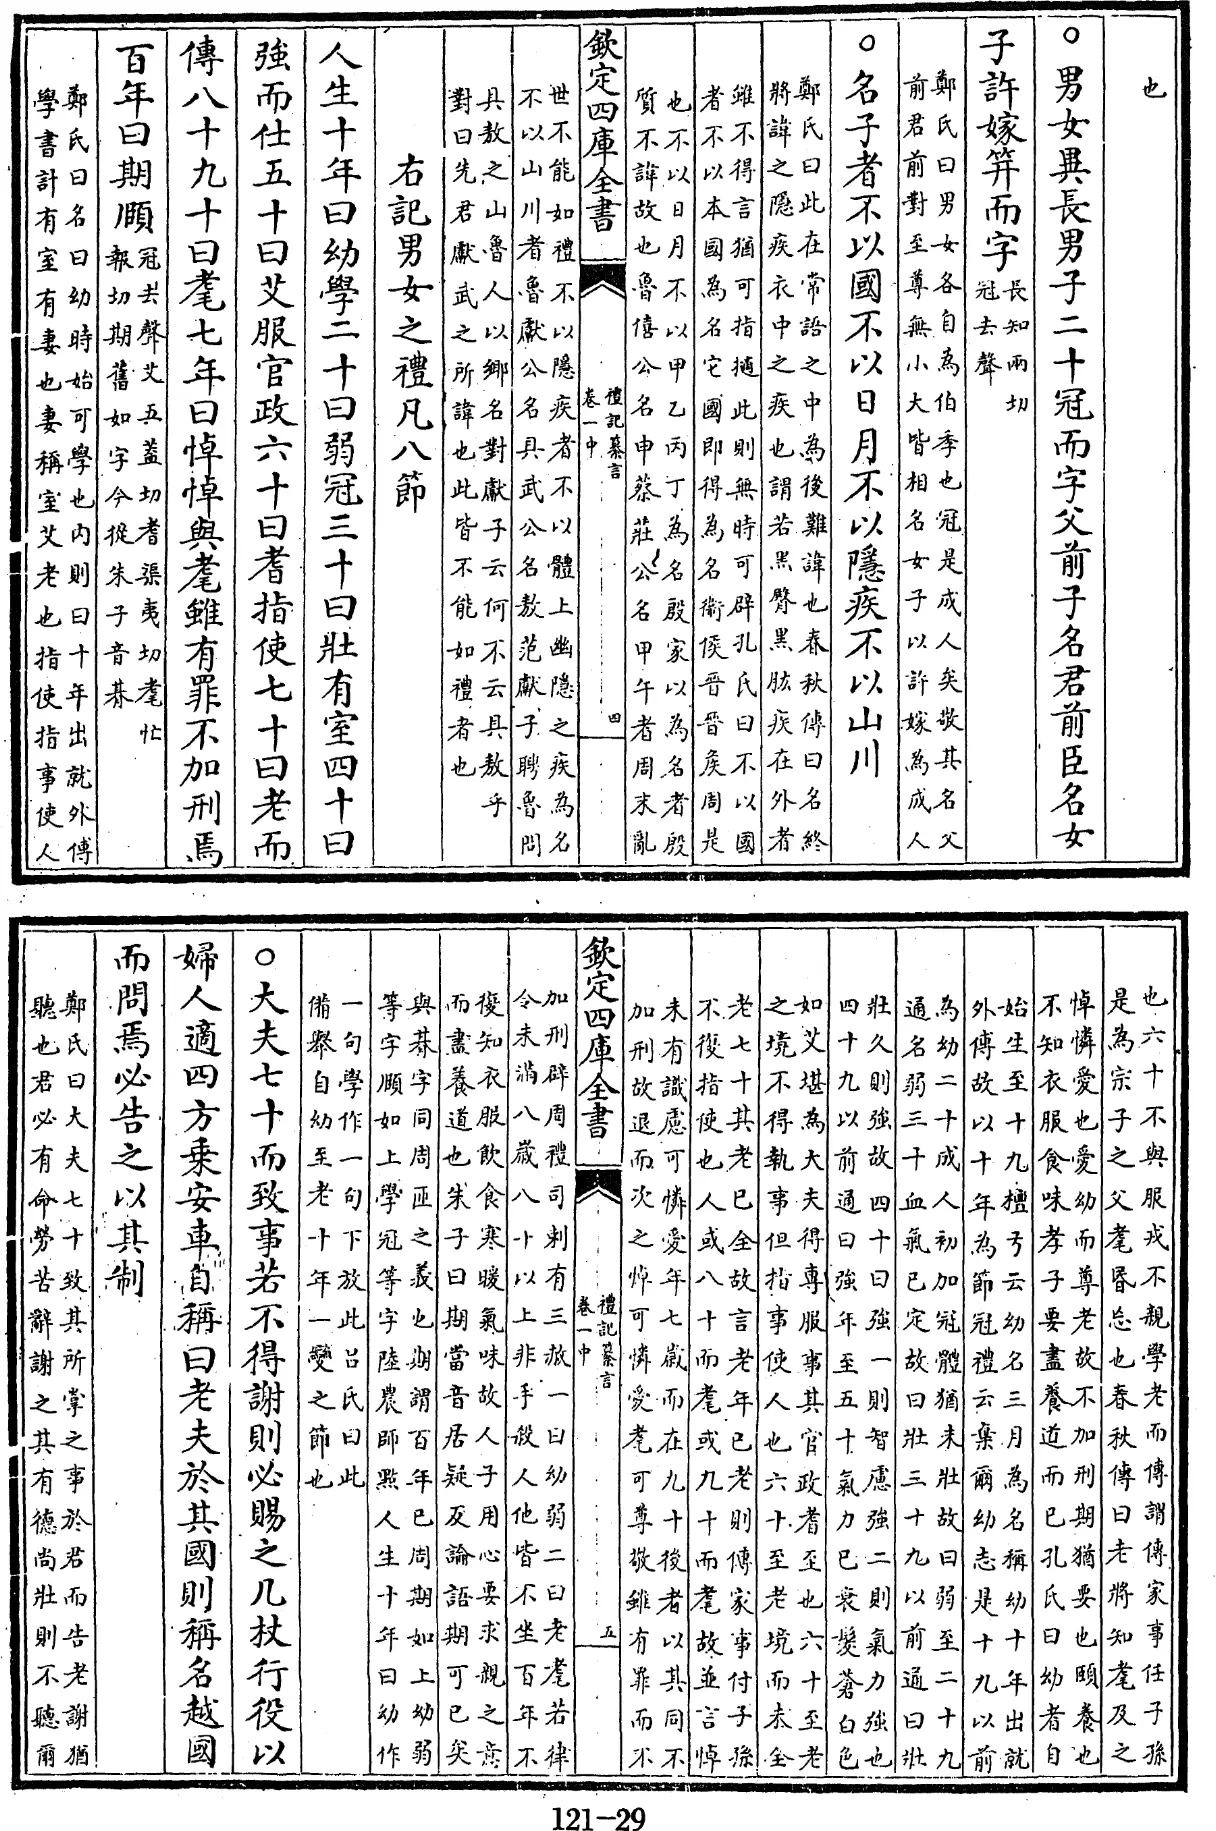 也
○男女異長男子二十冠而字父前子名君前臣名女
子許嫁笄而字長知兩切
冠去聲
鄭氏曰男女各自為伯季也冠是成人矣敬其名父
前君前對至尊無小大皆相名女子以許嫁為成人
○名子者不以國不以日月不以隱疾不以山川
鄭氏曰此在常語之中為後難諱也春秋傳曰名終
將諱之隱疾衣中之疾也謂若黑臀黑肱疾在外者
雖不得言猶可指擿此則無時可辟孔氏曰不以國
者不以本國為名它國即得為名衞侯晉晉侯周是
也不以日月不以甲乙丙丁為名殷家以為名者殷
質不諱故也魯僖公名申蔡莊公名甲午者周末亂
欽定四庫全書
禮記纂言
卷一中
四
世不能如禮不以隱疾者不以體上幽隱之疾為名
不以山川者魯獻公名具武公名敖范獻子聘魯問
具敖之山魯人以鄉名對獻子云何不云具敖乎
對曰先君獻武之所諱也此皆不能如禮者也
右記男女之禮凡八節
人生十年曰幼學二十曰弱冠三十曰壯有室四十曰
強而仕五十曰艾服官政六十曰耆指使七十曰老而
傳八十九十曰耄七年曰悼悼與耄雖有罪不加刑焉
百年曰期頤冠去聲艾五蓋切耆渠夷切耄忙
報切期舊如字今從朱子音朞
鄭氏曰名曰幼時始可學也内則曰十年出就外傅
學書計有室有妻也妻稱室艾老也指使指事使人
也六十不與服戎不親學老而傳謂傳家事任子孫
是為宗子之父耄惛忘也春秋傳曰老將知耄及之
悼憐愛也愛幼而尊老故不加刑期猶要也頤養也
不知衣服食味孝子要盡養道而已孔氏曰幼者自
始生至十九檀弓云幼名三月為名稱幼十年出就
外傅故以十年為節冠禮云棄爾幼志是十九以前
為幼二十成人初加冠體猶未壯故曰弱至二十九
通名弱三十血氣已定故曰壯三十九以前通曰壯
壯久則強故四十曰強一則智慮強二則氣力強也
四十九以前通曰強年至五十氣力已衰髮蒼白色
如艾堪為大夫得專服事其官政耆至也六十至老
之境不得執事但指事使人也六十至老境而未全
老七十其老已全故言老年已老則傳家事付子孫
不復指使也人或八十而耄或九十而耄故並言悼
未有識慮可憐愛年七歲而在九十後者以其同不
加刑故退而次之悼可憐愛耄可尊敬雖有罪而不
欽定四庫全書
禮記纂言
卷一中
五
加刑辟周禮司刺有三赦一曰幼弱二曰老耄若律
令未滿八歲八十以上非手殺人他皆不坐百年不
復知衣服飲食寒暖氣味故人子用心要求親之意
而盡養道也朱子曰期當音居疑反論語期可已矣
與朞字同周匝之義也期謂百年已周期如上幼弱
等字頤如上學冠等字陸農師點人生十年曰幼作
一句學作一句下放此吕氏曰此
備舉自幼至老十年一變之節也
○大夫七十而致事若不得謝則必賜之几杖行役以
婦人適四方乗安車自稱曰老夫於其國則稱名越國
而問焉必告之以其制
鄭氏曰大夫七十致其所掌之事於君而告老謝猶
聽也君必有命勞苦辭謝之其有德尚壯則不聽爾
121-29